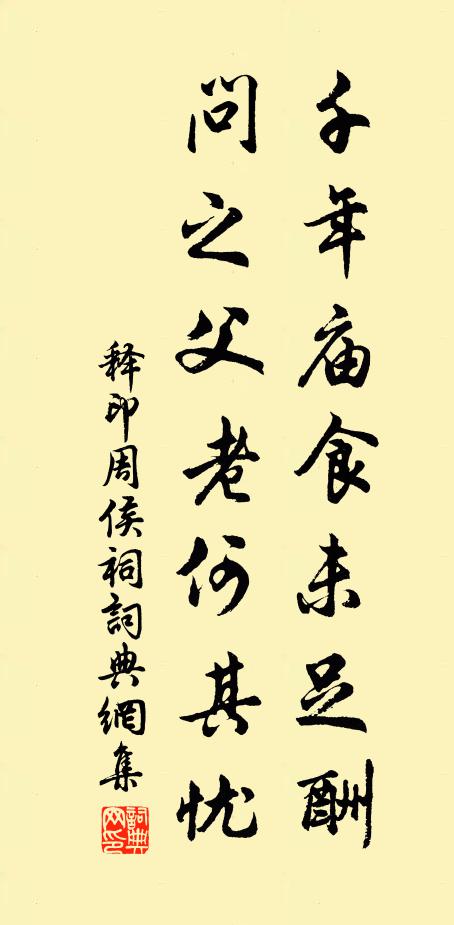 千年庙食未足酬
问之父老何其忧
释印周侯祠詞典網集
詞典
网印